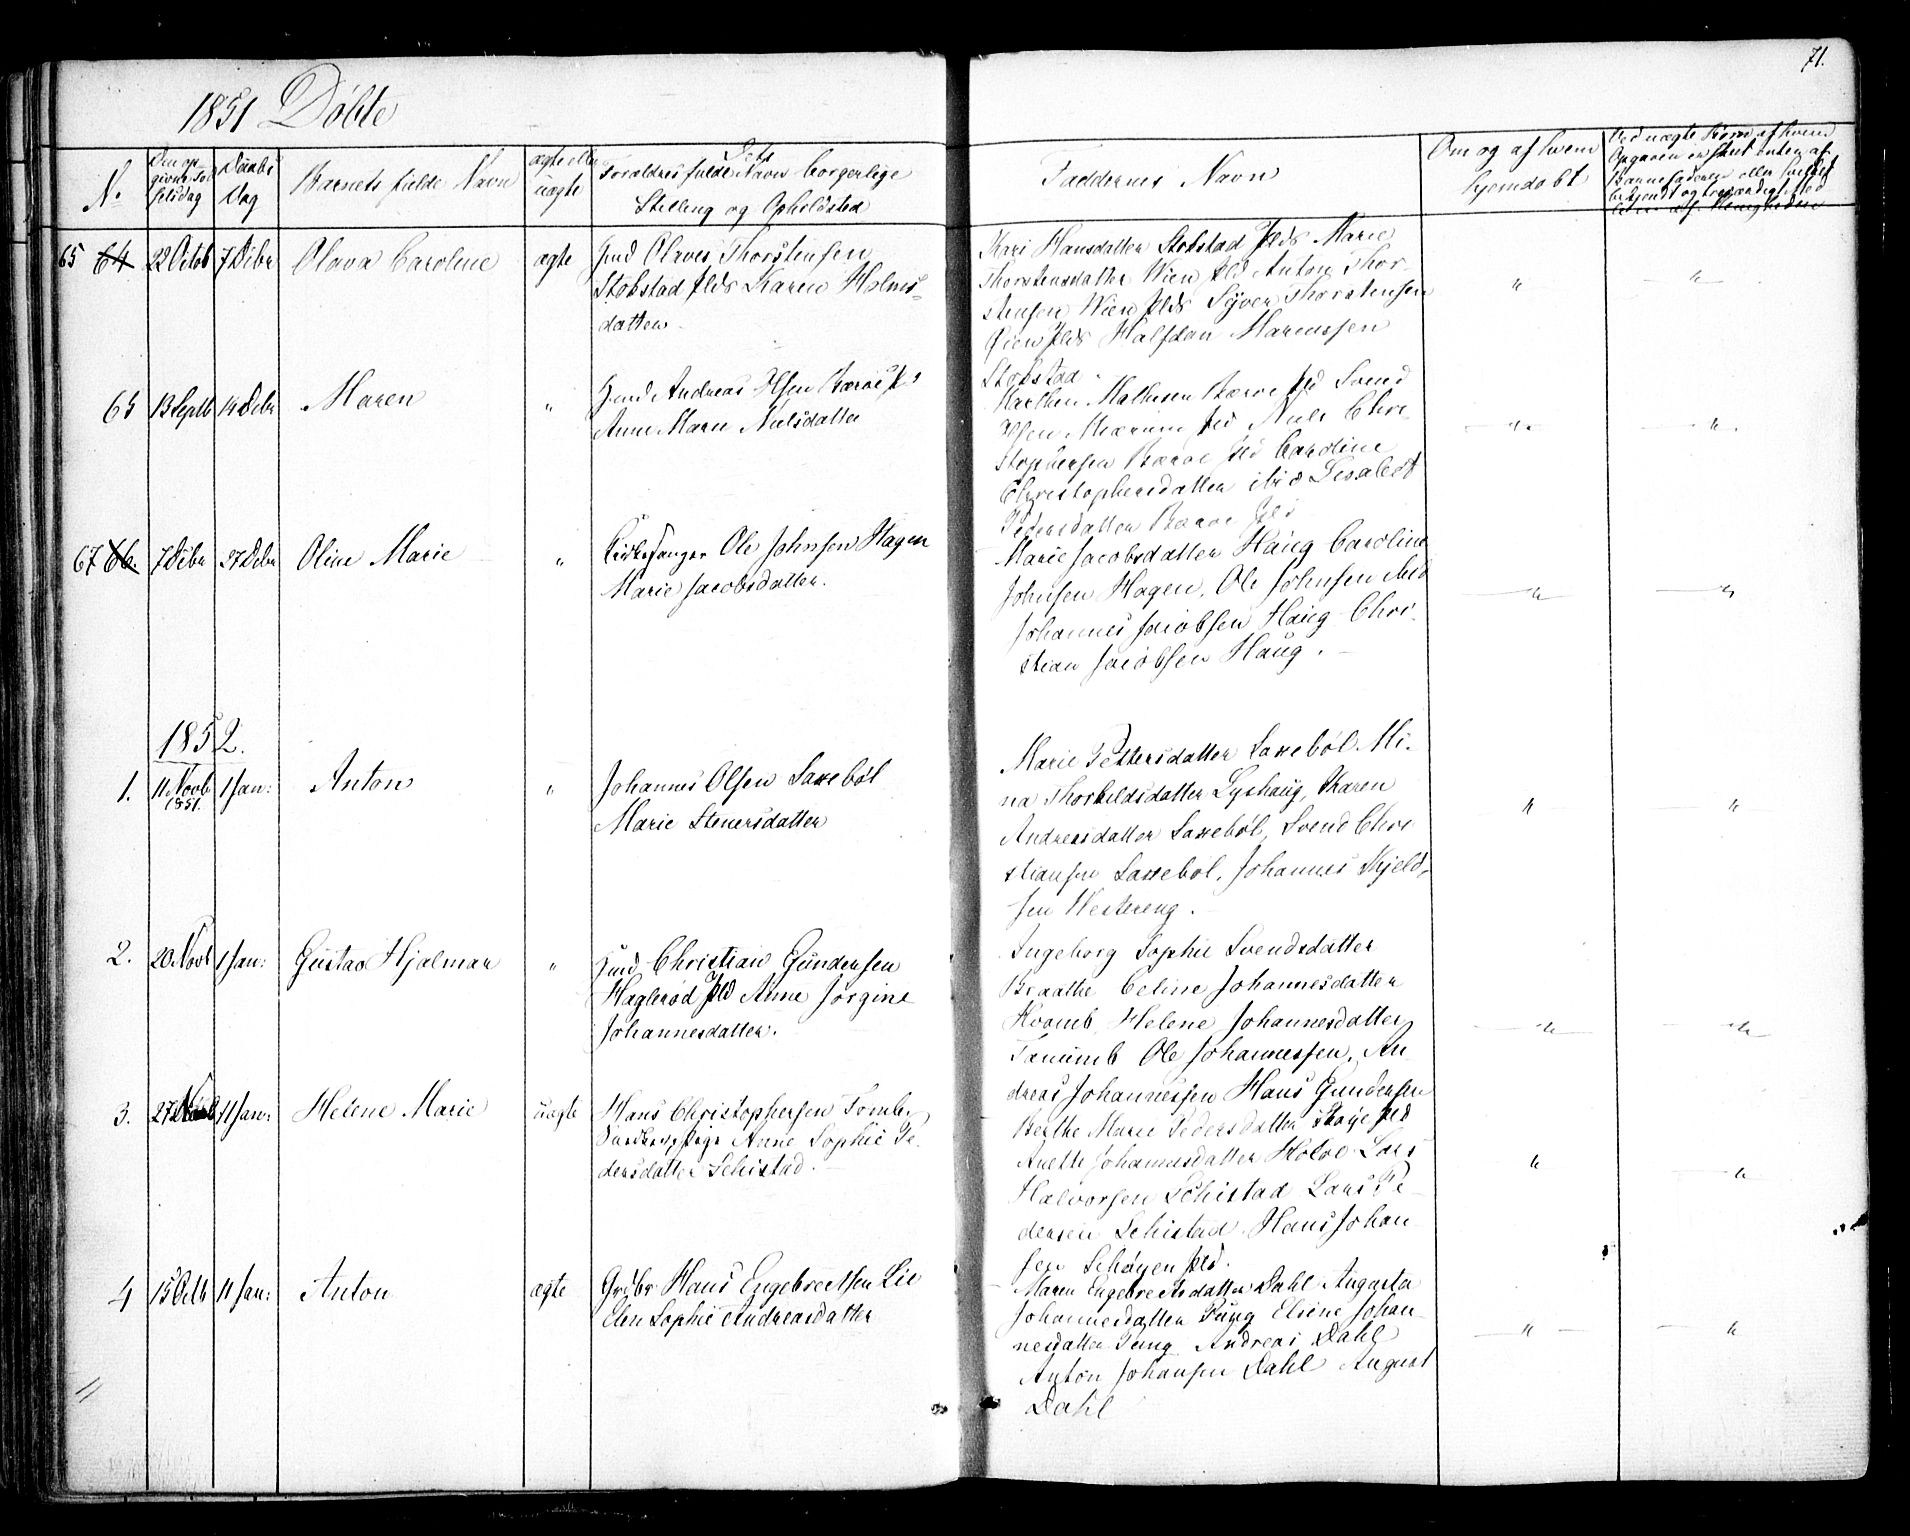 71.
1851 Döbte
N.
Den op
givne Fø
selsdag
Daabs
Dag
Barnets fulde Navn
ægte eller
uægte
Dets
Forældres fulde Navn borgerlige
Stilling og Opholdsted
Faddernes Navn
Om og af hvem
hjemdøbt
65 64 22 Octob 7 Debr Olava Caroline ægte
Gmd Olaves Thorstensen
Stobstad Plds Karen Holms-
datter
Kari Hansdatter Stobstad Plds Marie
Thorstensdatter Wien Pld Anton Thor-
stensen Wien Plds Syver Thorstensen
Øien Plds Halfdan Marcussen
Stobstad
65 13 Septb 14 Debr Maren "
Gmd Andreas Olsen Bærøe
Anne Marie Nielsdatter
Svend
Olsen Pld Niels Chri
stophersen Bærøe Pld Caroline
Christophersdatter ibid
Pedersdatter Bærøe Plds
67 66. 7 Debr 27 Debr Oline Marie "
Kirkesanger Ole Johnsen Hagen
Marie Jacobsdatter.
Marie Jacobsdatter Haug Caroline
Johnsen Hagen, Ole Johnsen
Johannes Jacobsen Haug Chri-
stian Jacobsen Haug.
1852.
1. 11 Novb 1851. 1 Jan: Anton "
Johannes Olsen Saxebøl
Marie Stenersdatter
Marie Pettersdatter Saxebøl Mi-
na Thorkildsdatter Lyshaug, Karen
Andreasdatter Saxebøl, Svend Chri
stiansen Saxebøl, Johannes Kjeld-
sen Westereng.
2. 20. Novb 1 Jan: Gustav Hjalmar "
Gmd Christian Gundersen
Haglerød Pld Anne Jørgine
Johannesdatter.
Ingeborg Sophie Svendsdatter
Beathe Celine Johannesdatter
Kvamb, Helene Johannesdatter
Tanumb Ole Johannessen, An
dreas Johannessen Hans Gundersen
3. 27 11 Jan: Helene Marie uægte
Hans Christophersen Tomb
Pige Anne Sophie Pe-
dersdatter Schistad.
Berthe Marie Pedersdatter Pld
Anette Johannesdatter Holøe Lars
Halvorsen Schistad Lars Pe-
dersen Schistad Hans Johan
sen Schøyen Pld.
4 15 Octb 11 Jan: Anton ægte
Grdbr Hans Engebretsen Lie
Elen Sophie Andreasdatter
Maren Engebretsdatter Dahl Augusta
Johannesdatter Tung Elsine Johan
nesdatter Tung Andreas Dahl
Anton Johansen Dahl August
Dahl